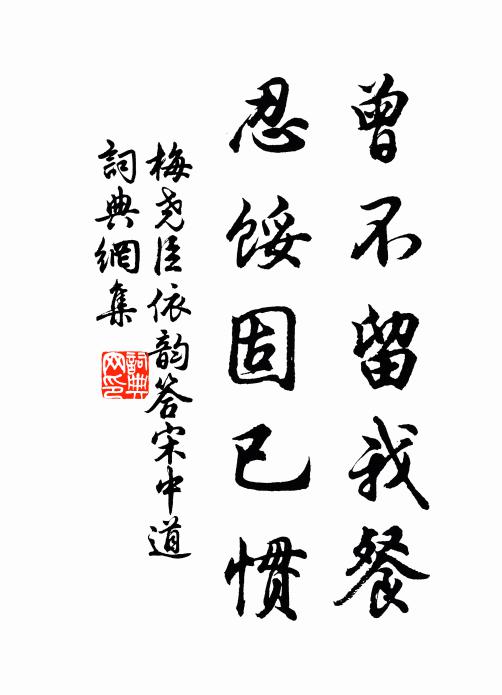 曾不留我餐
忍餒固已惯
梅尧臣依韵答宋中道
詞典網集
詞典网印